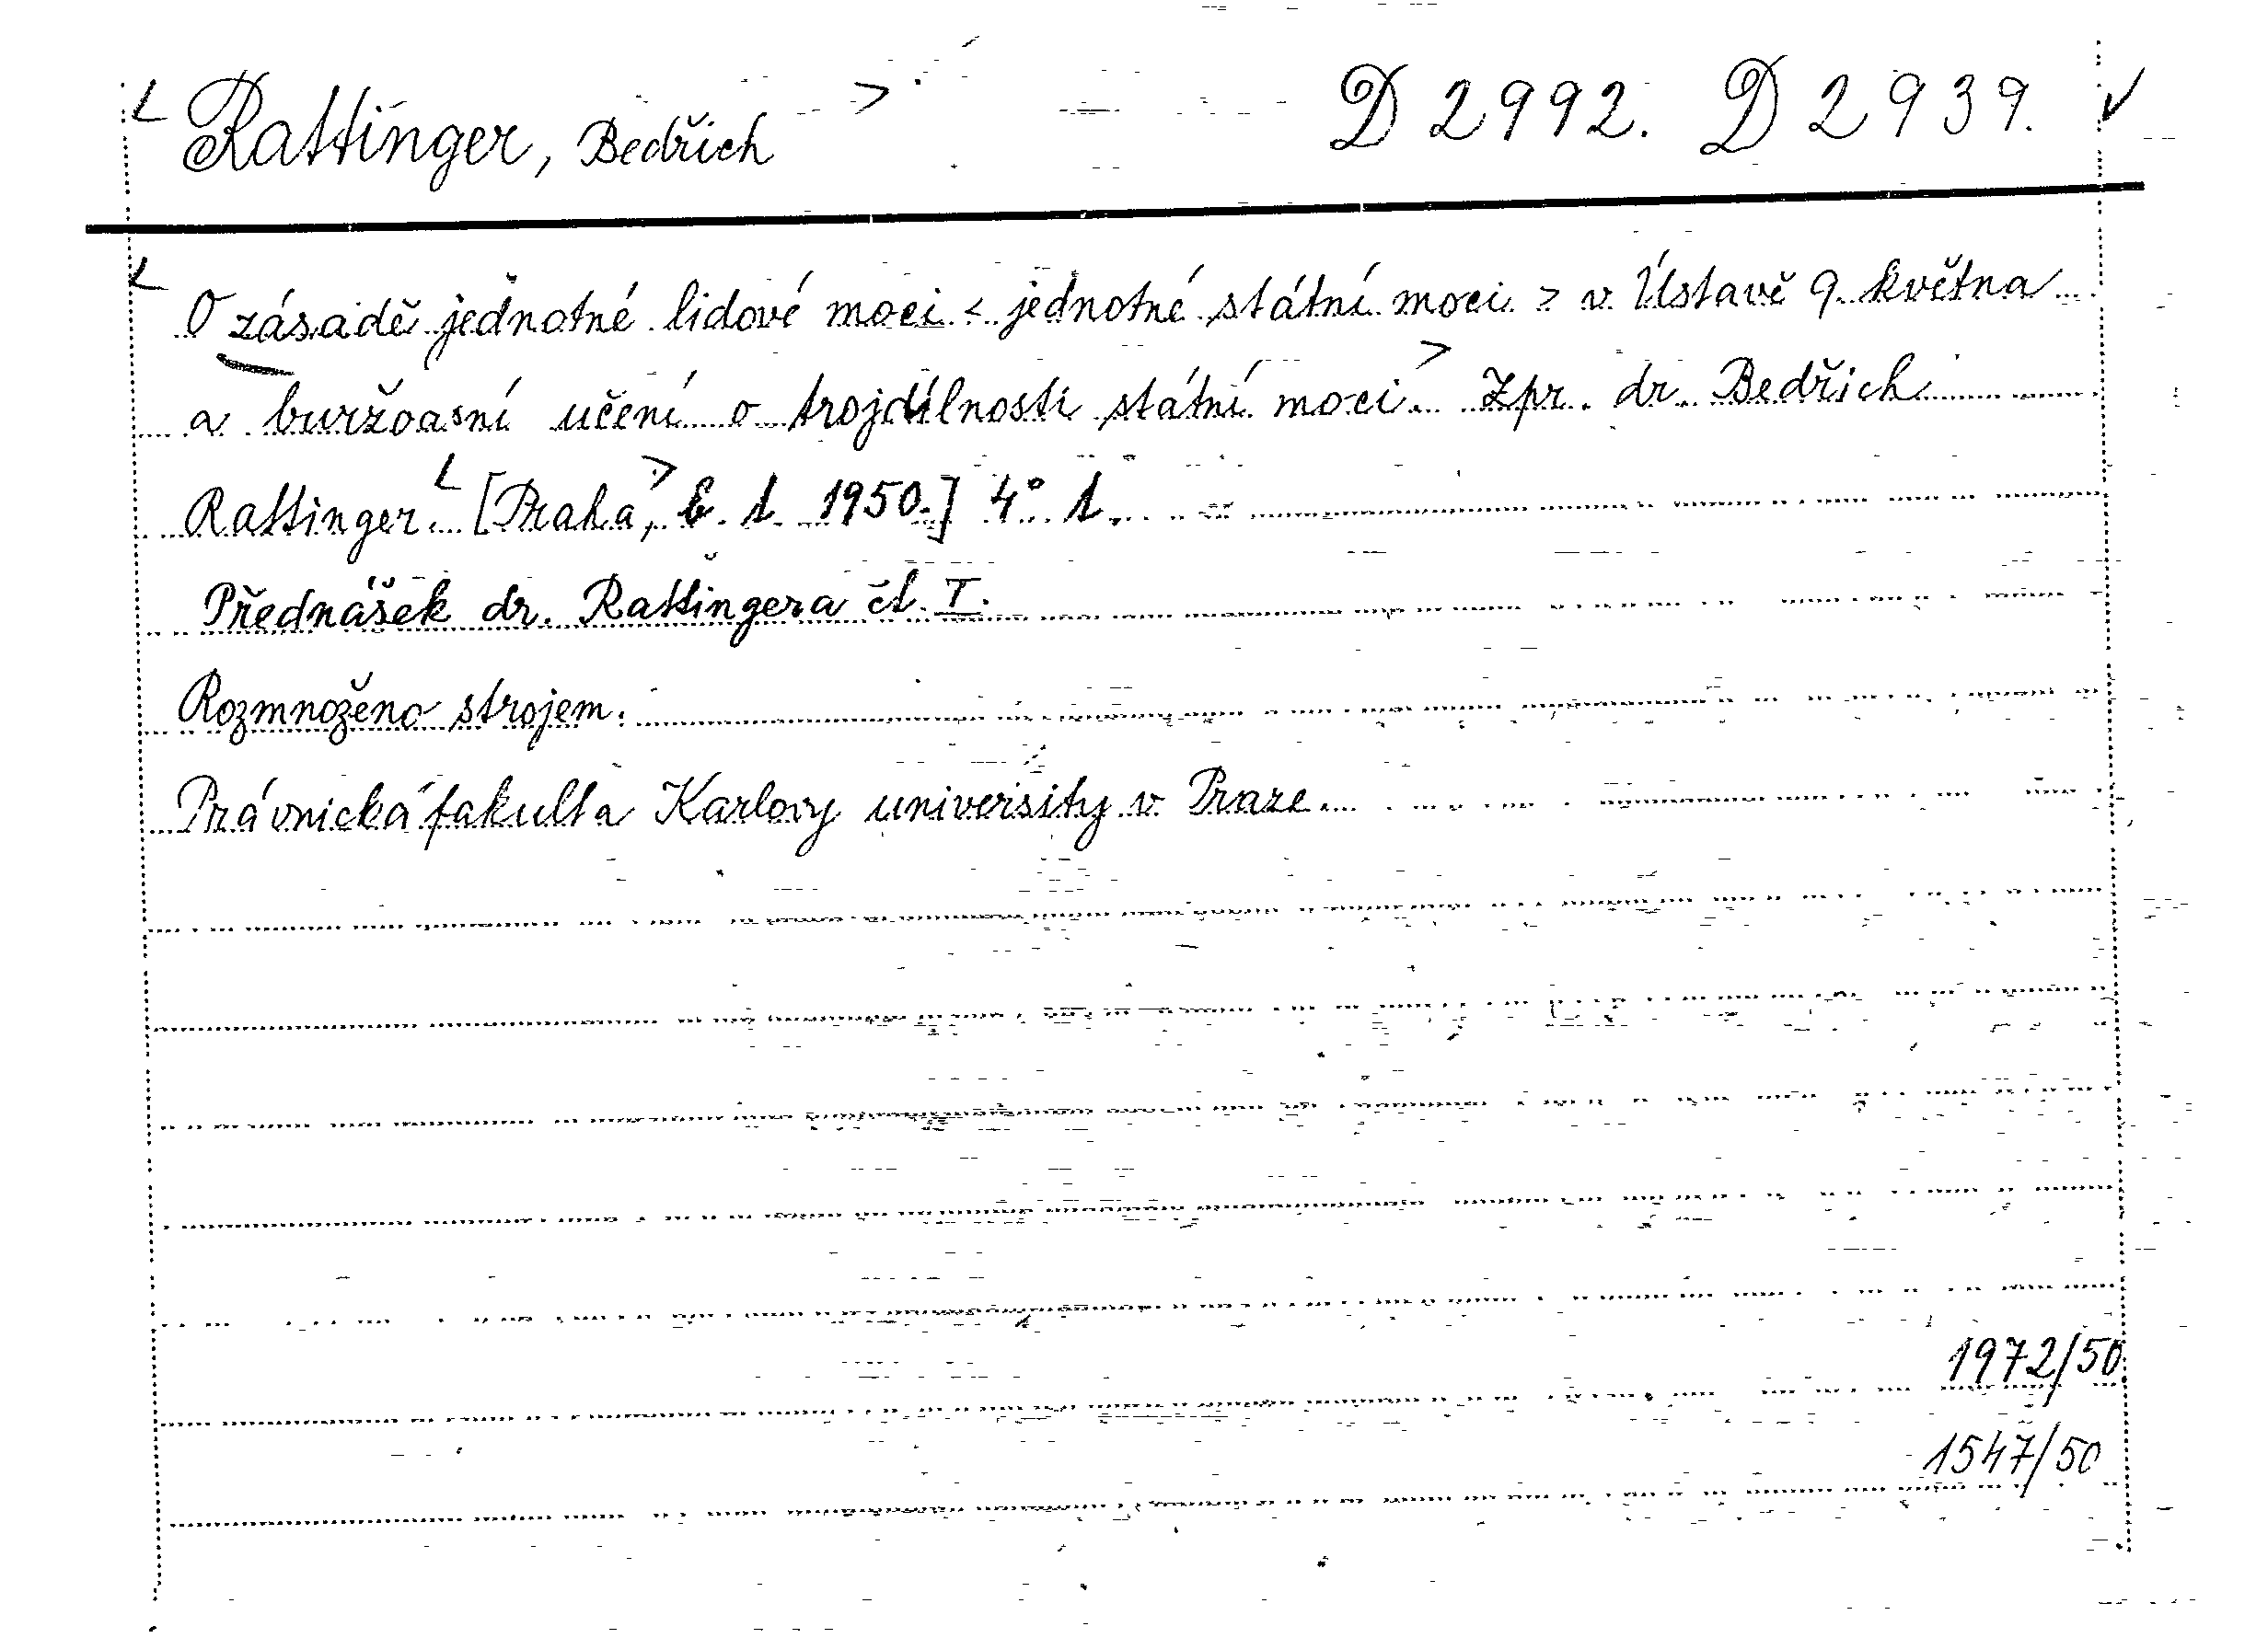 < Rattinger, Bedřich > D 2992. D 2939. ✓
< O zásadě jednotné lidové moci < jednotné státní moci > v Ústavě 9. května
a buržoasní učení o trojdílnosti státní moci. > Zpr. dr. Bedřich
Rattinger. < [Praha, > b. t. 1950.] 4° 1.
Přednášek dr. Rattingera čl. I.
Rozmnoženo strojem.
Právnická fakulta Karlovy university v Praze.
1972/50
1547/50